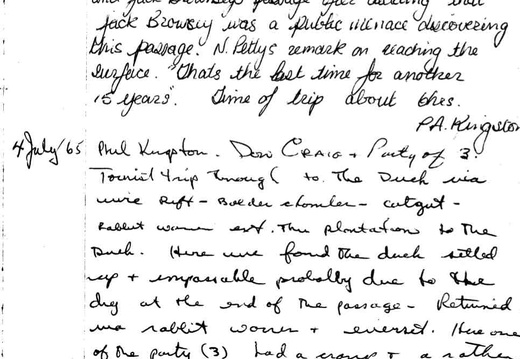 Jack Browsey was a public menace discovering
this passage. N. Pettys remark on reaching the
surface. "Thats the last time for another
15 years". Time of trip about 6hrs.
P.A. Kingston
4 July/65 Phil Kingston. Don CRAIG + Party of 3.
Tourist trip through to The Duck via
wire Rift - Bolder chamber - catgut -
Rabbit warren ent. Thru plantation to The
Duck. Here we found the duck silted
up + impassable probably due to the
dig at the end of the passage - Returned
via rabbit warren + exersed. Here one
of the party (3) had a cramp + a rather